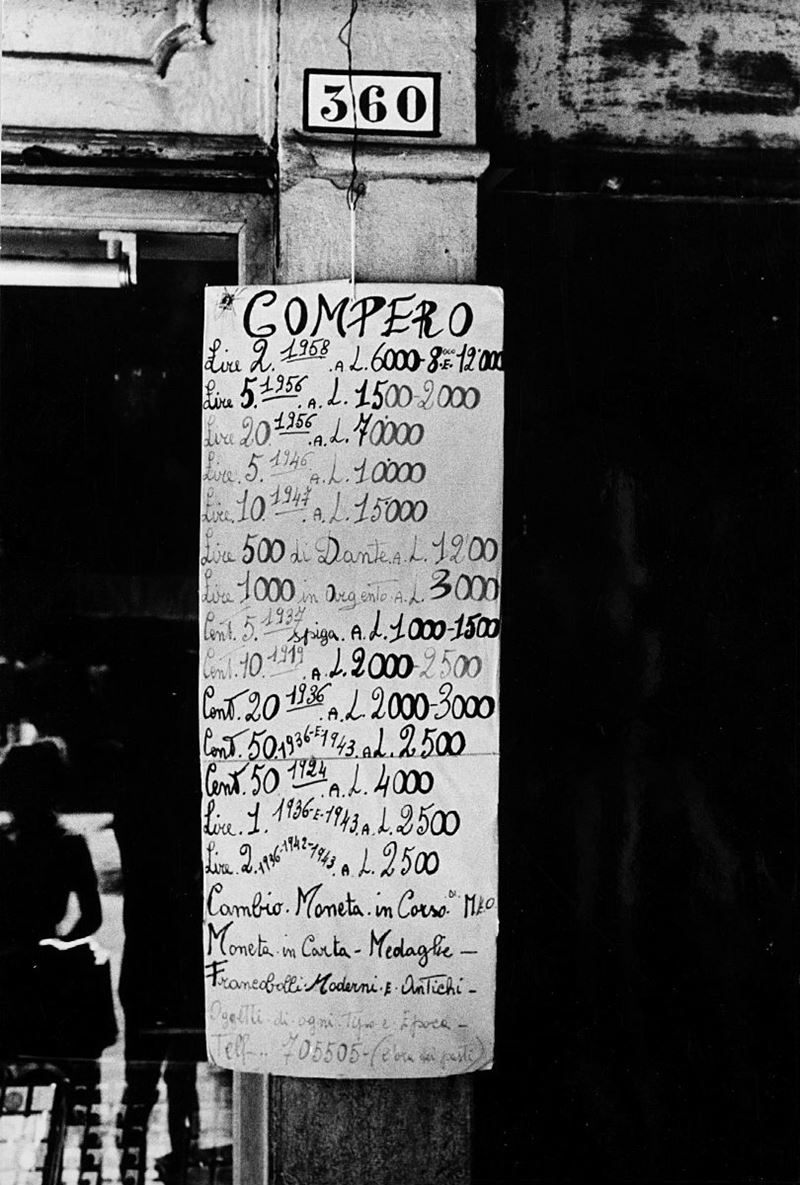 360
COMPERO
Lire 2. 1958 . A L. 6000-8000 E. 12'000
Lire 5. 1956 . A. L. 1500-2000
Lire 20. 1956 . A. L. 70000
Lire. 5. 1946 A. L. 10000
Lire. 10. 1947 . A. L. 15000
Lire 500 di Dante. A. L. 1200
Lire 1000 in argento. A. L. 3000
Cent. 5. 1937 spiga. A. L. 1000-1500
Cent. 10. 1919 . A. L. 2000-2500
Cent. 20 1936 . A. L. 2000-3000
Cent. 50. 1936-E-1943. A L. 2500
Cent. 50 1924 . A. L. 4000
Lire. 1. 1936-E-1943. A. L. 2500
Lire. 2. 1936-1942-1943. A L. 2500
Cambio. Moneta. in Corso.
Moneta. in Carta - Medaglie -
Francobolli. Moderni. E. Antichi -
Oggetti. di. ogni. Tipo e Epoca -
Telf... 705505-(